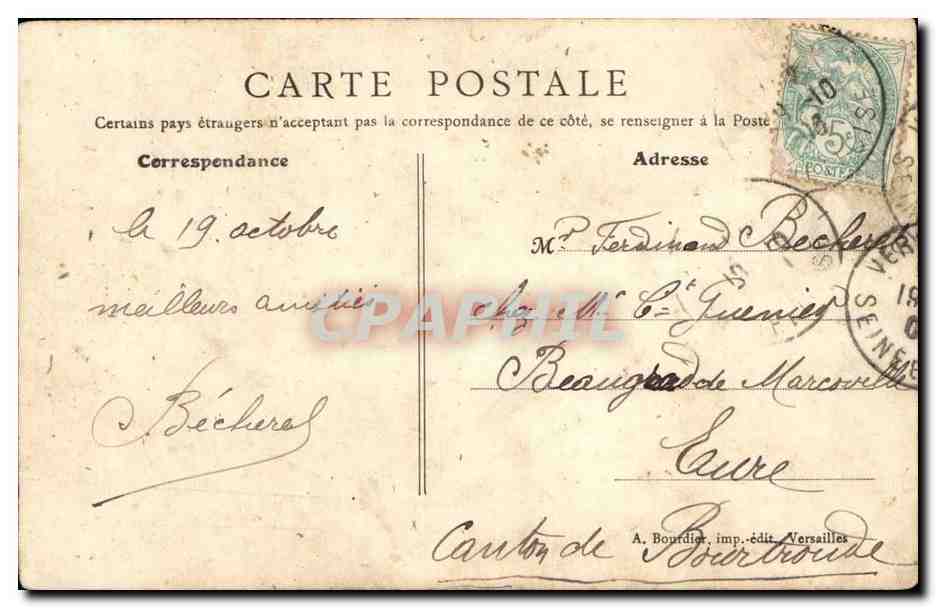 CARTE POSTALE
Certains pays étrangers n'acceptant pas la correspondance de ce côté, se renseigner à la Poste
Correspondance
le 19 octobre
meilleurs amitiés
Bécherel
Adresse
Mr Ferdinand Bécherel
chez Mr Cte Guenier
de Marcoville
Eure
Canton de Bourtroude
A. Bourdier, imp.-édit. Versailles
5c
POSTES
VER
SEINE-E
CPAPHIL